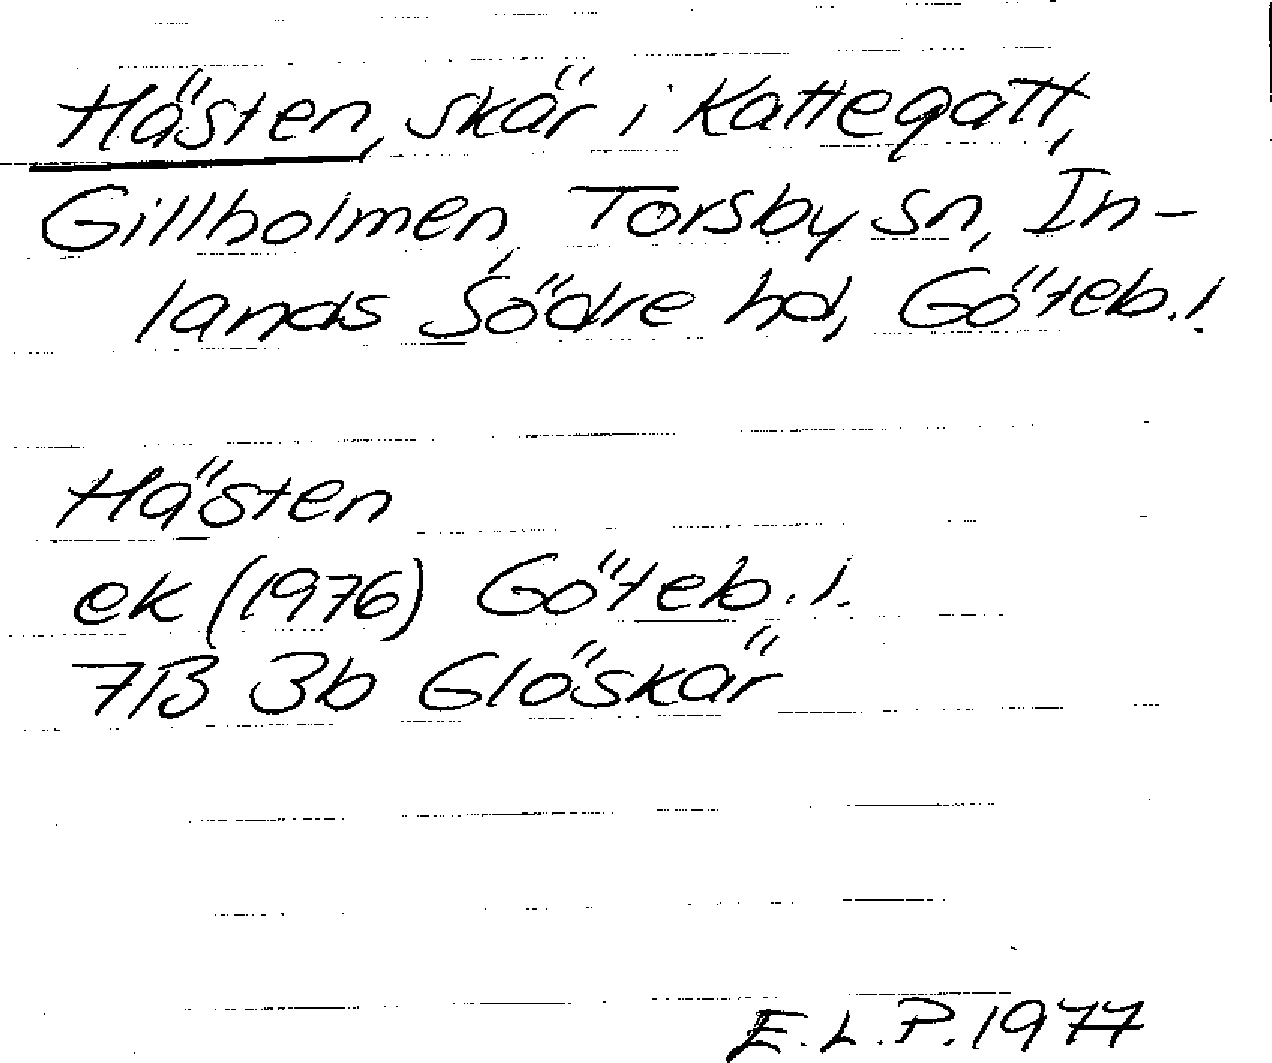 Hästen, skär i Kattegatt,
Gillholmen, Torsby sn, In-
lands Södre hd, Göteb.l.
Hästen
ek (1976) Göteb.l.
7B 3b Glöskär
E.L.P. 1977